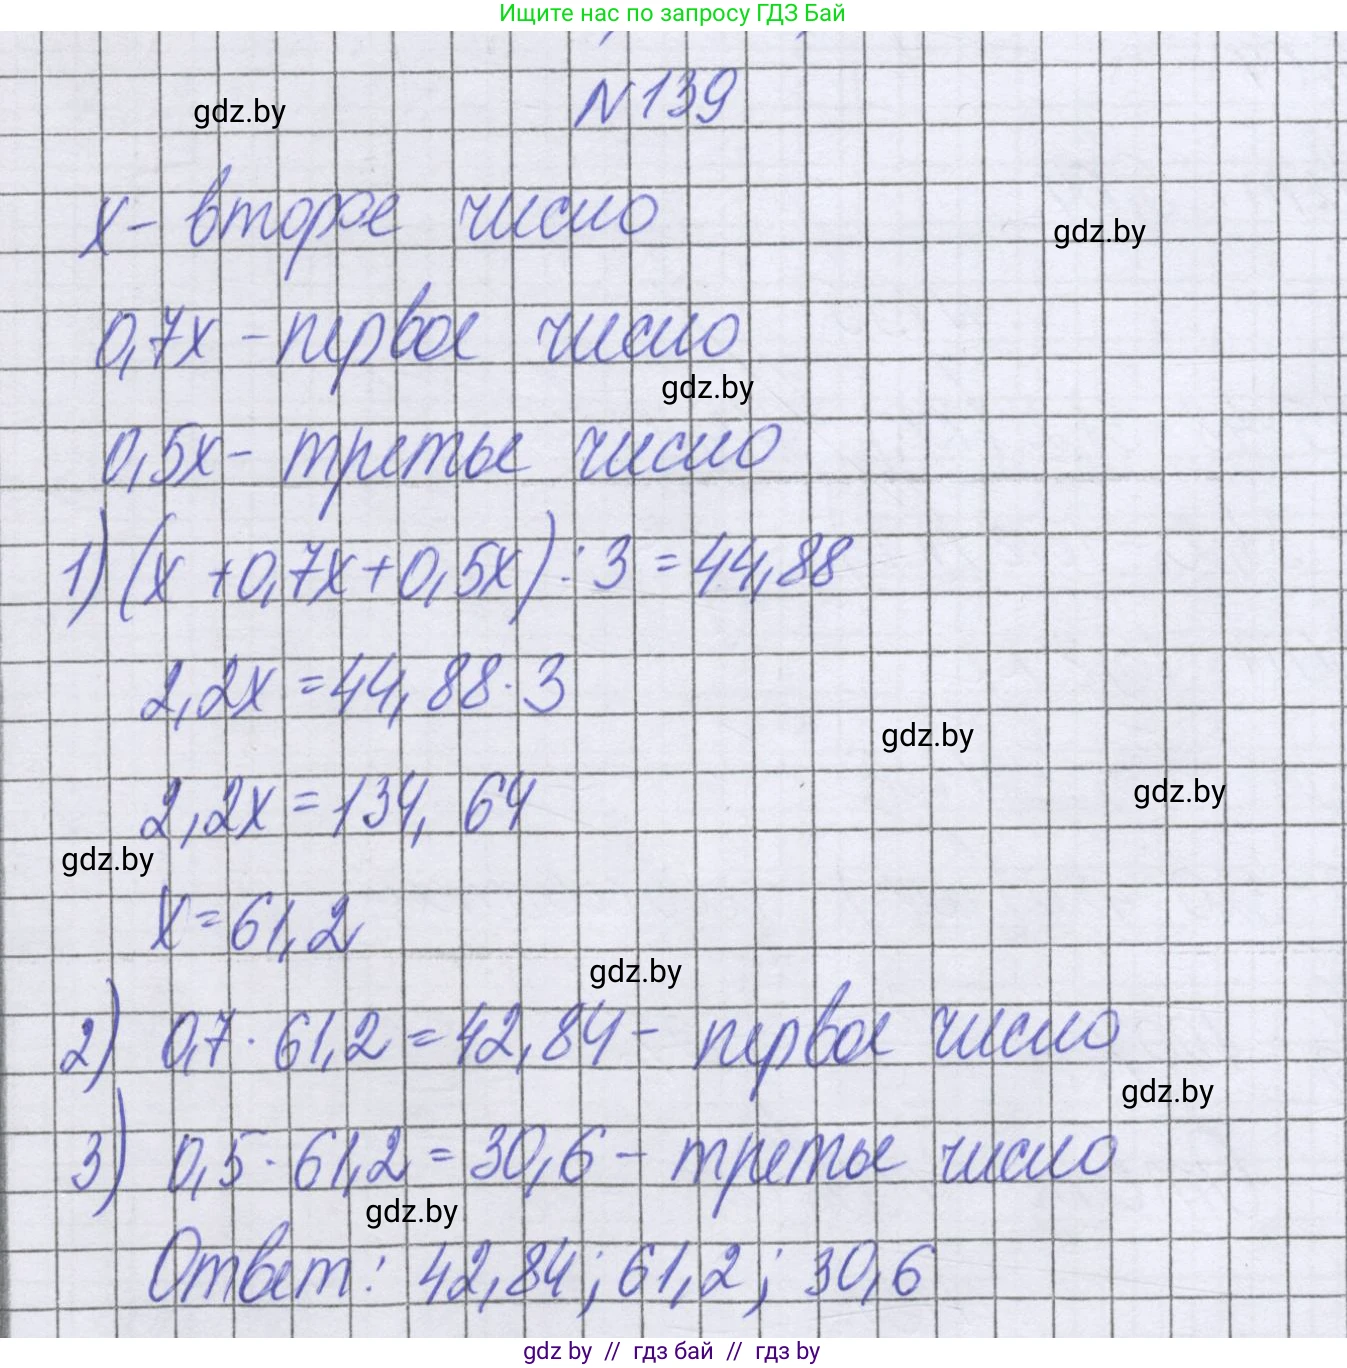 Ищите нас по запросу ГДЗ Бай
N 139
gdz.by
x - второе число
gdz.by
0,7x - первое число
gdz.by
0,5x - третье число
1) (x + 0,7x + 0,5x) : 3 = 44,88
2,2x = 44,88 · 3
gdz.by
2,2x = 134,64
gdz.by
gdz.by
x = 61,2
gdz.by
2) 0,7 · 61,2 = 42,84 - первое число
gdz.by
3) 0,5 · 61,2 = 30,6 - третье число
gdz.by
Ответ: 42,84; 61,2; 30,6
gdz by // гдз бай // гдз by